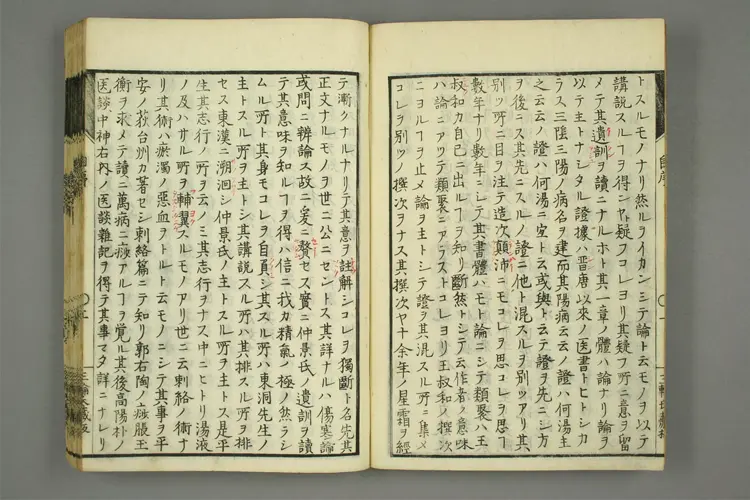 トスルモノナリ然ルヲイカンシテ論ト云モノヲ以テ
講説スルヿヲ得ンヤト疑フコレヨリ其疑フ所ニ意ヲ留
メテ其遺訓ヲ讀ニナルホト其一章ノ體ハ論ナリ論ヲ
以テ主トナシタル證據ハ晋唐以來ノ医書トヒトシカ
ラス三陰三陽ノ病名ヲ建而其陽病云云ノ證ハ何湯主
之云云ノ證ハ何湯ニ宜ト云或與ト云テ證ヲ先ニシ方
ヲ後ニス其先ニスルノ證ニ他ト混スルヲ別ツアリ其
別ツ所ニ目ヲ注テ造次顛沛ニモコレヲ思コレヲ思フ
數年ナリ數年ニシテ其書體ハモト論ニシテ類聚ハ王
叔和カ自己ニ出ルヿヲ知リ斷然トシテ云作者ノ意味
ハ論ニアツテ類聚ニアラストコレヨリ王叔和ノ撰次
ニヨルヿヲ止メ論ヲ主トシテ證ヲ其混スル所ニ集メ
コレヲ別ツノ撰次ヲナス其撰次ヤ十余年ノ星霜ヲ經
テ漸クナルナリテ其意ヲ註解シコレヲ獨斷ト名先其
正文ナルモノヲ世ニ公ニセントス其詳ナルハ傷寒論
或問ニ辨論ス故ニ爰ニ贅セス實ニ仲景氏ノ遺訓ヲ讀
テ其意味ヲ知ルヿヲ得ハ信ニ我カ精氣ノ極ノ然ラシ
ムル所ト其身モコレヲ自負シ其スル所ハ東洞先生ノ
主トスル所ヲ主トシ其講説スル所ハ其排スル所ヲ排
セス東漢ニ溯洄シ仲景氏ノ主トスル所ヲ主トス是平
生其志行ノ所ヲ云ノミ其志行ヲナス中ニヒトリ湯液
ノ及ハサル所ヲ輔翼スルモノアリ世ニ云刺絡ノ術ナ
リ其術ハ瘀濁ノ惡血ヲトルト云モノニシテ其事ヲ平
安ノ荻台洲カ著セシ刺絡篇ニテ知リ郭右陶ノ痧脹王
衡ヲ求メテ讀ニ萬病ニ痧アルヿヲ覚ル其後高陽朴ノ
医談中神右内ノ医談雜記ヲ得テ其事マタ詳ニナレリ
自序
自序
三輪氏藏板
三輪氏藏板